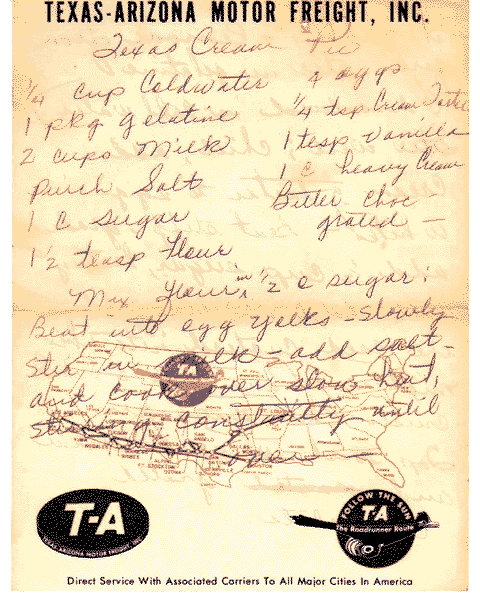 TEXAS-ARIZONA MOTOR FREIGHT, INC.
Texas Cream Pie
1/4 cup Coldwater 4 eggs
1 pkg gelatine 1/4 tsp Cream Tarter
2 cups Milk 1 tesp Vanilla
Pinch Salt 1 c heavy Cream
1 c sugar Bitter choc -
grated -
1 1/2 teasp flour
Mix flour in 1/2 c sugar:
Beat into egg yolks - slowly
Stir in milk - add salt -
and cook over slow heat,
stirring constantly until
T-A
T-A
TEXAS-ARIZONA MOTOR FREIGHT, INC.
FOLLOW THE SUN
T-A
The Roadrunner Route
Direct Service With Associated Carriers To All Major Cities In America